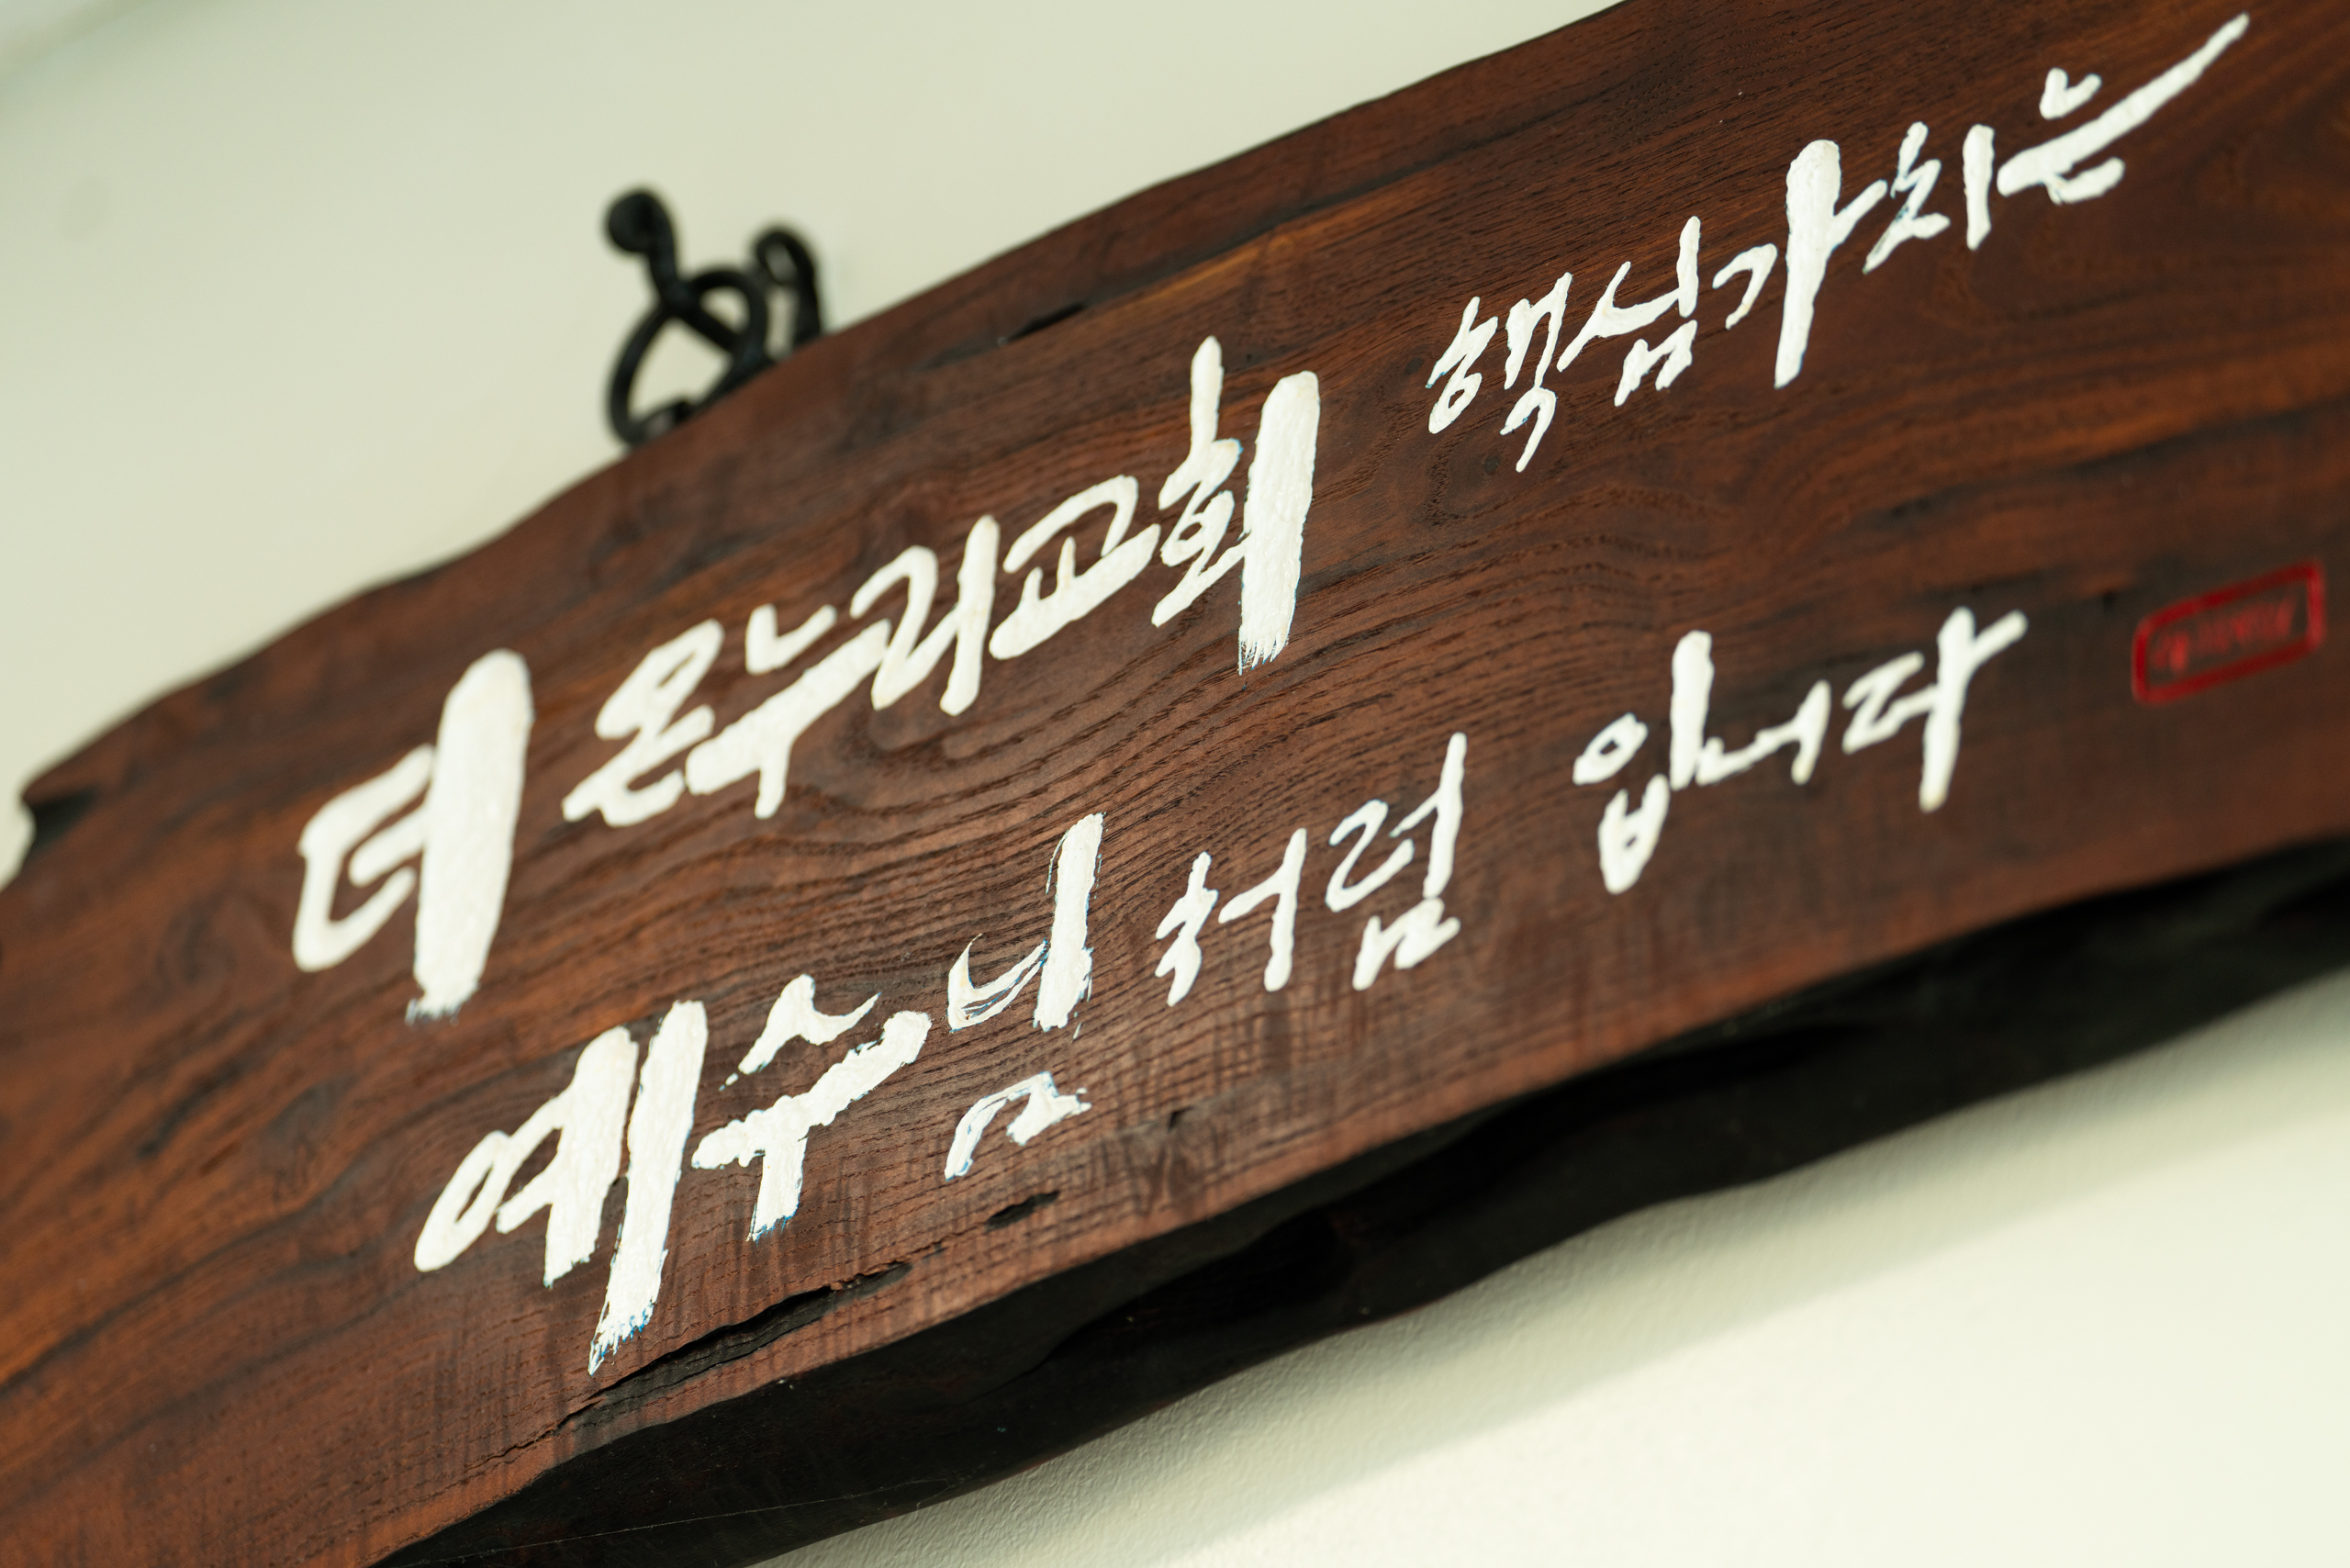 더 온누리교회 핵심가치는
예수님처럼 입니다